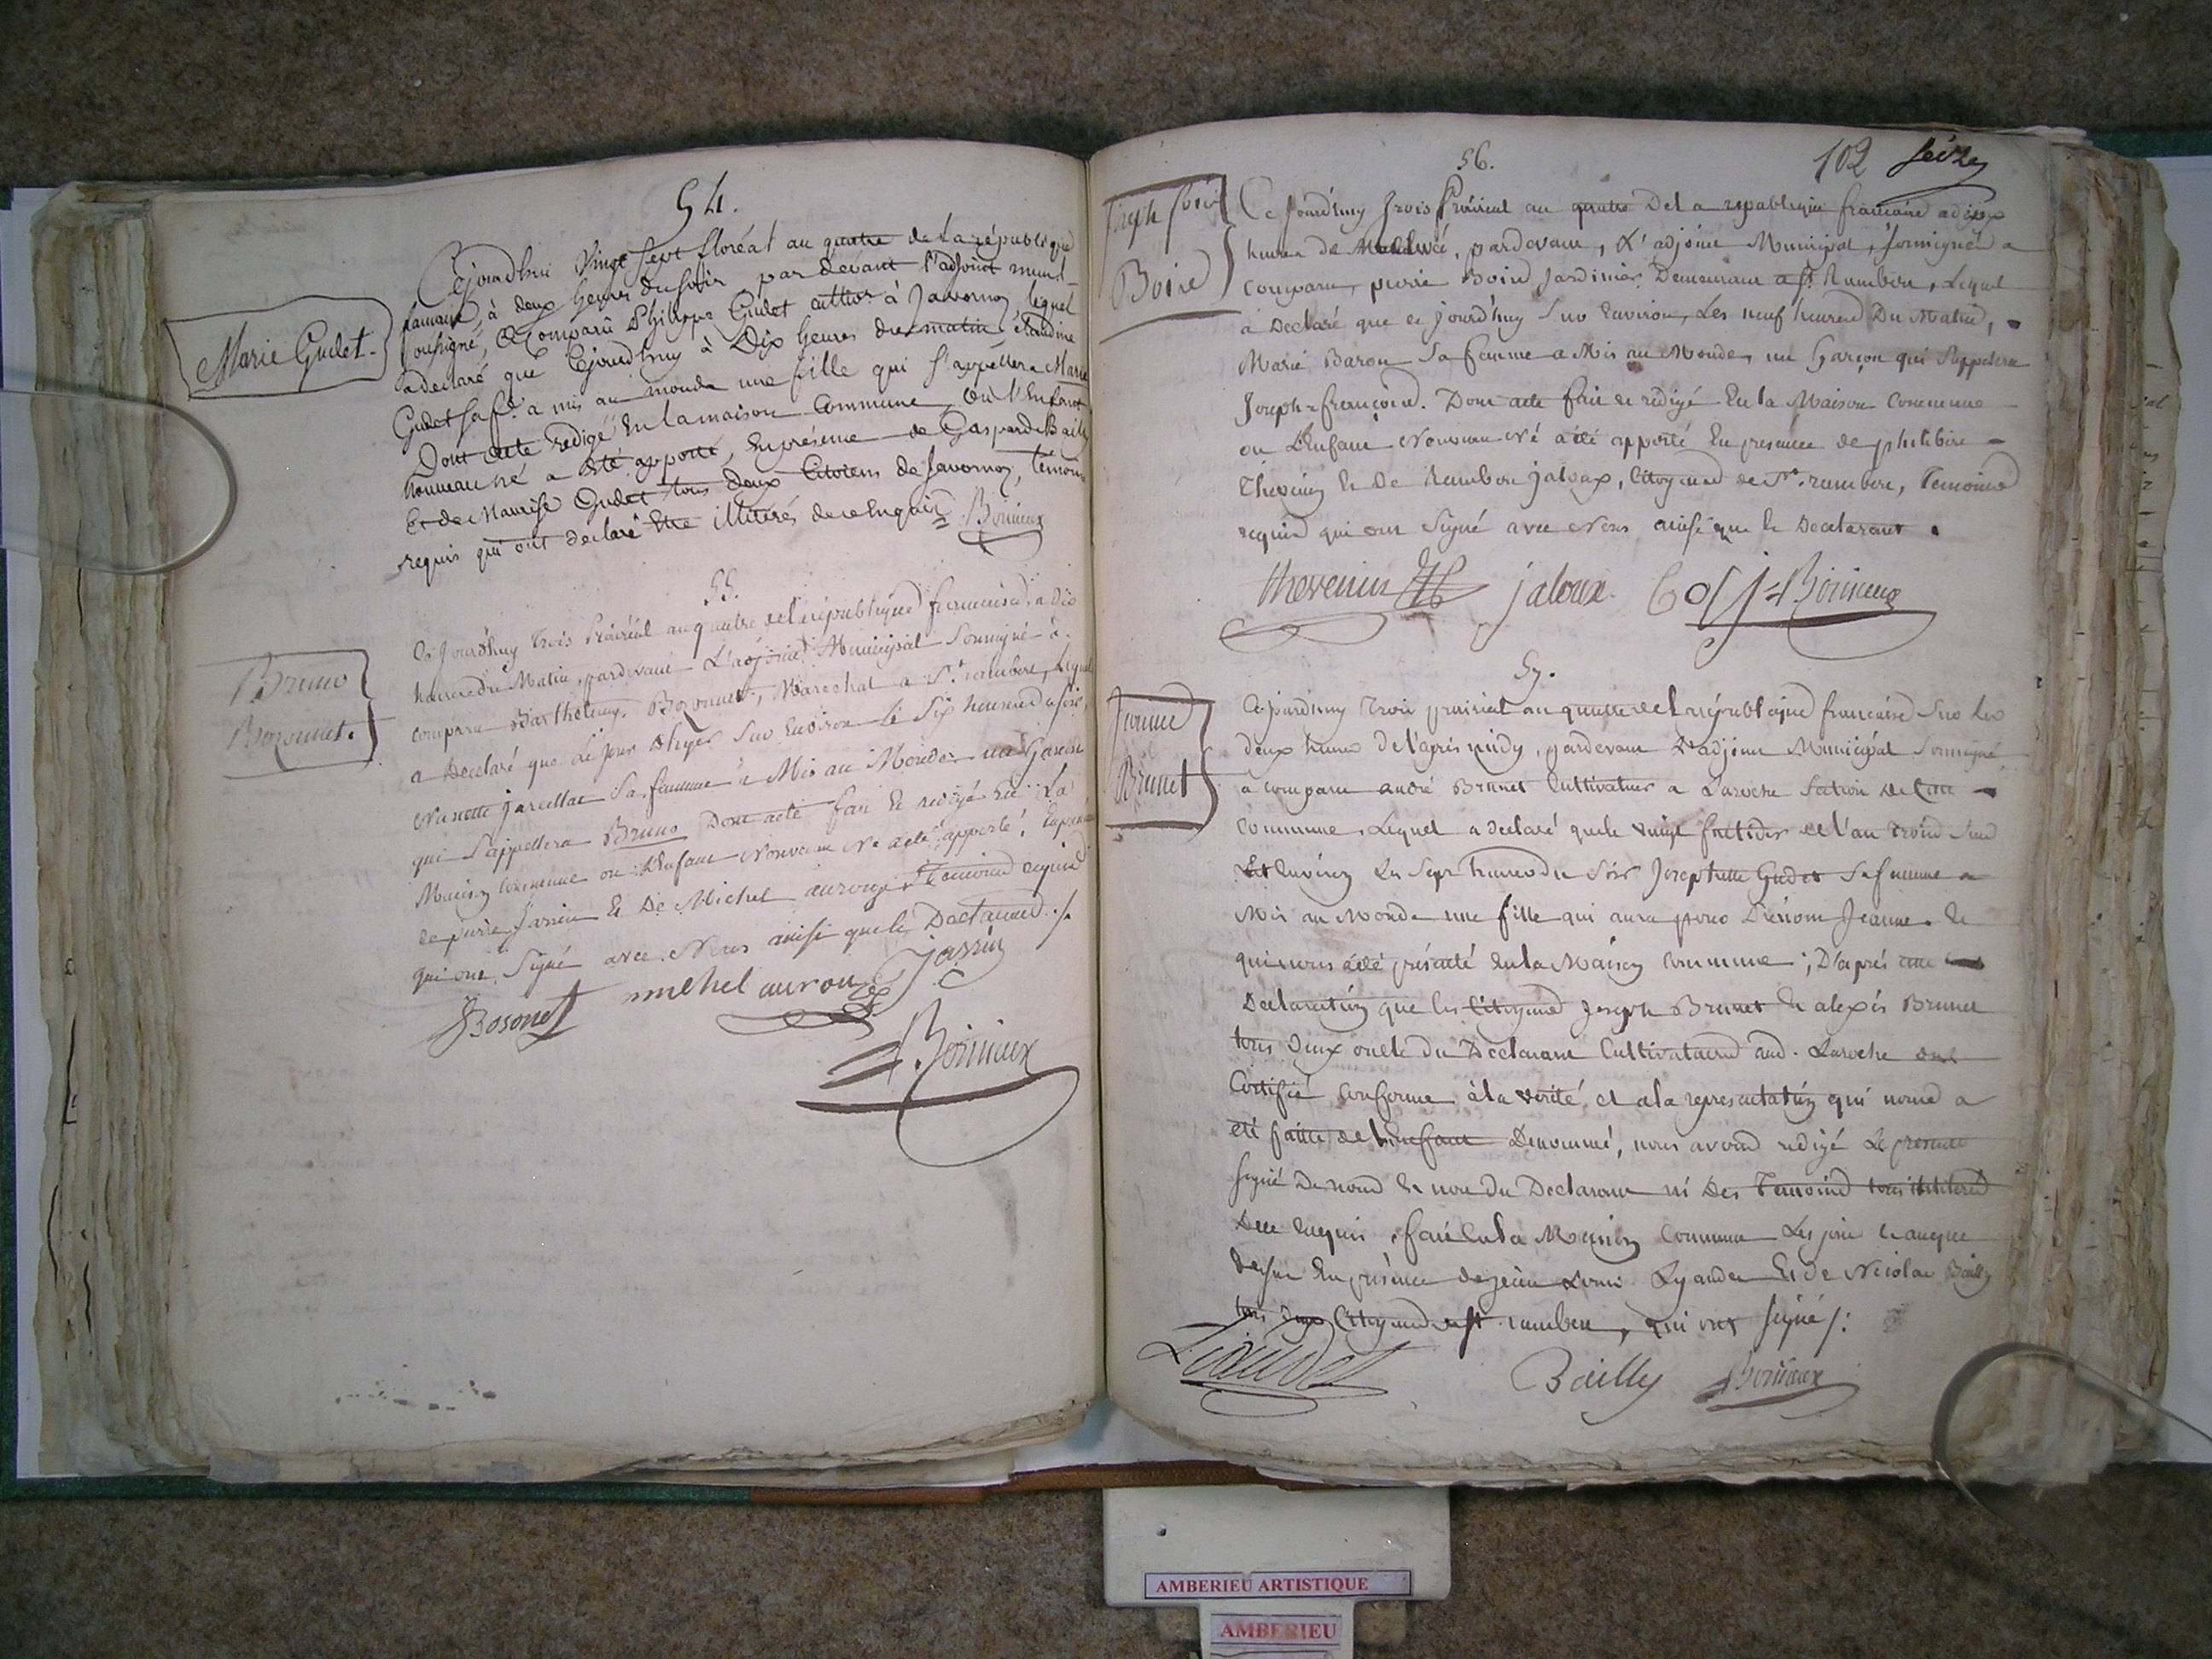 54.
Marie Gudet.
Cejourdhui Vingt sept floréal an quatre de la république
francaise, à deux heures du soir par devant l'adjoint munal
soussigné, a Comparû Philippe Gudet cultivr à Javornoz lequel
a déclaré que Cejourdhuy à Dix heures du matin Claudine
Gudet sa fe. a mis au monde une fille qui s'appellera Marie
Dont acte redigé En la maison Commune, où l'Enfant
nouveau né a été apporté, En présence de Gaspard Bailly
Et de Maurise Gudet tous deux Citoiens de Javornoz, témoins
requis qui ont déclaré Etre illitérés de ce Enquis Bonieux
55.
Bruno
Bozonnet.
Ce Jourdhuy trois Prairéal an quatre de la république francaise, a dix
heures du Matin, pardevant L'adjoint Municipal Soussigné a
comparu Barthelemy Bozonnet, Marechal a St. rambert, Lequel
a Déclaré que Le jour d'hyer Sur Environ Le Six heures du soir,
Nanette Sa femme a Mis au Monde un Garcon
qui S'appellera Bruno Dont acte fait Et redigé En La
Maison Commune ou L'Enfant Nouveau Né a été apporté, En présence
de pierre Jassin Et De Michel auroux Temoins requis
qui ont Signé avec Nous ainsi que le Déclarant ./.
Bosonet michel auroux jassin
Bonieux
102
56.
Joseph fois
Boire
Ce Jourd'huy trois Prairial an quatre De la republique francaise a dix
heures de Matinée, pardevant, L'adjoint Municipal, soussigné a
comparu, pierre Boire Jardinier Demeurant a St. Rambert, Lequel
a Declaré que ce jourd'huy Sur Environ, Les neuf heures Du Matin,
Marie Baron Sa femme a Mis au Monde, un Garçon qui S'appelera
Joseph francois. Dont acte fait et redigé En la Maison Commune
ou L'Enfant Nouveau Né a été apporté En presence de philibert
Thevenin Et De Rambert jaloux, Citoyens de St. rambert, Temoins
requis qui ont Signé avec Nous ainsi que le Declarant.
thevenin jaloux Bonieux
57.
Jeanne
Brunet
Cejourd'huy trois prairial an quatre de la république francaise Sur Les
deux heures de l'après midy, pardevant L'adjoint Municipal Soussigné,
a comparu andré Brunet Cultivateur a Laroche Section de Cette
Commune, Lequel a Declaré que le vingt fructidor de l'an trois Sur
Les Environ Les Sept heures du Soir Josephtte Gudet Sa femme a
Mis au Monde une fille qui aura pour Prénom Jeanne. Et
qui nous a été présenté En la Maison Commune; D'après cette
Declaration que les Citoyens Joseph Brunet Et alexis Brunet
tous deux oncle du Declarant Cultivateurs aud. Laroche ont
Certifié Conforme à la vérité, et a la representation qui nous a
été faite de L'Enfant Denommé, nous avons redigé Le present
signé De nous Et non du Declarant ni Des Temoins tous illiteres
De ce Enquis, fait En la Maison Commune Les jour et an que
dessus En présence de Lyaudet Et de Nicolas Bailly
tous deux Citoyens de St rambert, qui ont signé /:
Liaudet Bailly Bonieux
AMBERIEU ARTISTIQUE
AMBERIEU